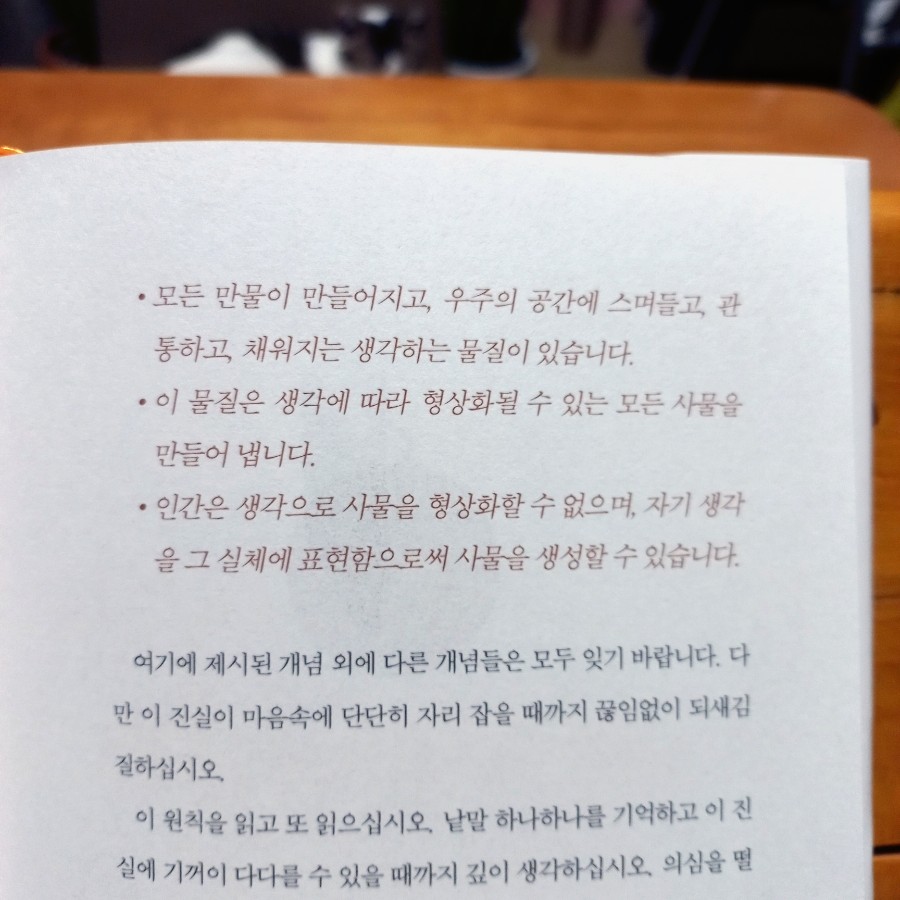 • 모든 만물이 만들어지고, 우주의 공간에 스며들고, 관
통하고, 채워지는 생각하는 물질이 있습니다.
• 이 물질은 생각에 따라 형상화될 수 있는 모든 사물을
만들어 냅니다.
• 인간은 생각으로 사물을 형상화할 수 없으며, 자기 생각
을 그 실체에 표현함으로써 사물을 생성할 수 있습니다.
여기에 제시된 개념 외에 다른 개념들은 모두 잊기 바랍니다. 다
만 이 진실이 마음속에 단단히 자리 잡을 때까지 끊임없이 되새김
질하십시오.
이 원칙을 읽고 또 읽으십시오. 낱말 하나하나를 기억하고 이 진
실에 기꺼이 다다를 수 있을 때까지 깊이 생각하십시오. 의심을 떨